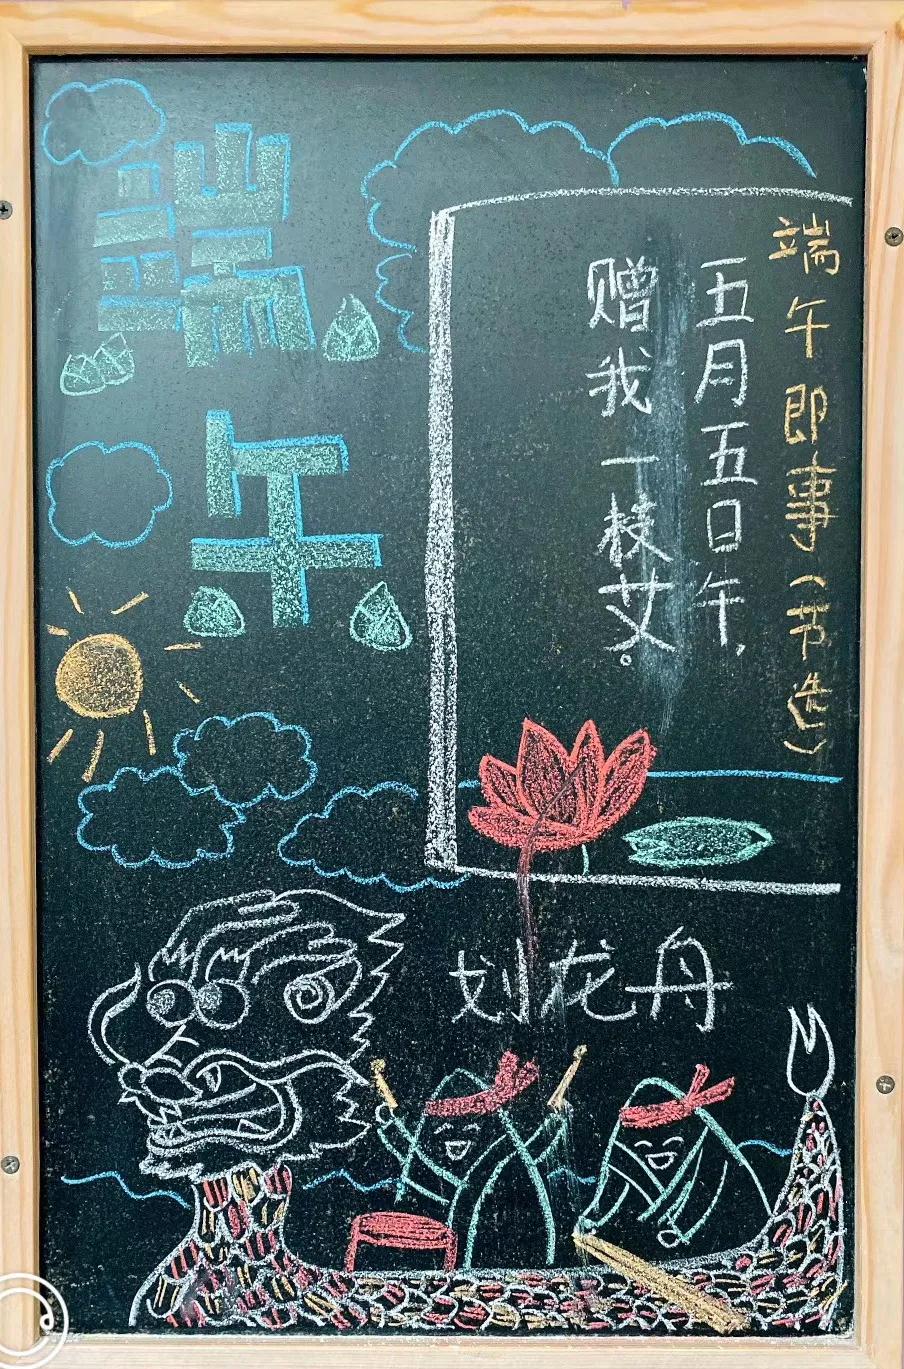 端午
端午即事(节选)
五月五日午,
赠我一枝艾。
划龙舟